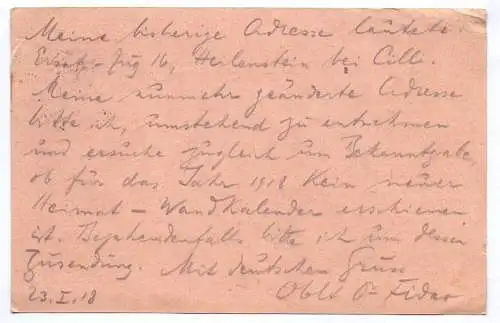 Meine bisherige Adresse lautete:
Ersatz-Zug 16, Heilenstein bei Cilli.
Meine nunmehr geänderte Adresse
bitte ich, umstehend zu entnehmen
und ersuche zugleich um Bekanntgabe,
ob für das Jahr 1918 kein neuer
Heimat-Wandkalender erschienen
ist. Bejahendenfalls bitte ich um dessen
Zusendung. Mit deutschem Gruss
23.I.18 Oblt